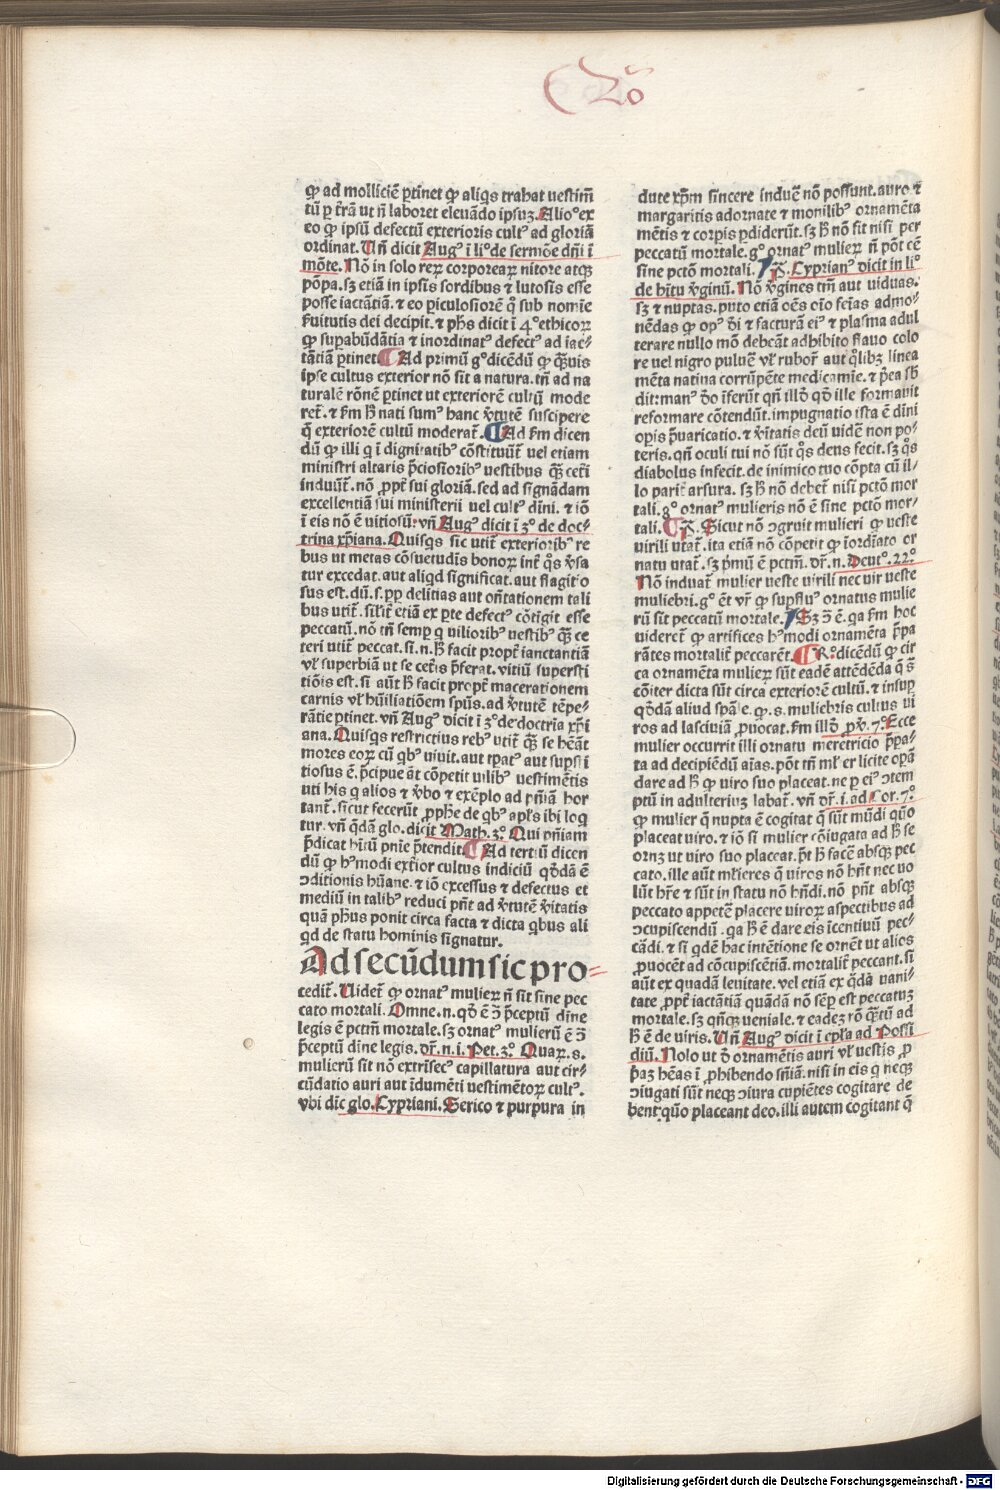 Qo
ꝙ ad molliciē ꝑtinet ꝙ aliqs trahat uestim̄
tū ꝑ t̄rā ut n̄ laboret eleuādo ipsuꝫ. Alio° ex
eo ꝙ ipsū defectū exterioris cultꝰ ad gloriā
ordinat. Vn̄ dicit Augꝰ ī li° de sermōe dn̄i ī
mōte. Nō in solo reꝝ corporeaꝝ nitore atqꝫ
pōpa. sꝫ etiā in ipsis sordibus ⁊ lutosis esse
posse iactātiā. ⁊ eo ꝑiculosiorē qͦ sub nomīe
ẜuitutis dei decipit. ⁊ ph̄s dicit ī 4° ethicoꝝ
ꝙ suꝑabūdātia ⁊ inordinatꝰ defectꝰ ad iac⸗
tātiā ꝑtinet. ¶ Ad primū g° dicēdū ꝙ q̄uis
ipse cultus exterior nō sit a natura. tn̄ ad na
turalē rōnē ꝑtinet ut exteriorē cultū mode
ret̄. ⁊ ẜm ħ nati sumꝰ hanc v̄tutē suscipere
q̄ exteriorē cultū moderat̄. ¶ Ad ẜm dicen
dū ꝙ illi q ī dignitatibꝰ cōstituūt̄ uel etiam
ministri altaris p̄ciosioribꝰ uestibus q̄ cet̄i
induūt̄. nō ꝓpt̄ sui gloriā. sed ad signādam
excellentiā sui ministerii uel cultꝰ dīni. ⁊ iō
ī eis nō ē uitiosū. vn̄ Augꝰ dicit ī 3° de doc⸗
trina xp̄iana. Quisqs sic utit̄ exterioribꝰ re
bus ut metas cōsuetudīs bonoꝝ int̄ qͦs v̄sa
tur excedat. aut aliqd significat. aut flagitio
sus est. dū. s. ꝑꝑ delitias aut on̄tationem tali
bus utit̄. sil̄it̄ etiā ex ꝑte defectꝰ cōtigit esse
peccatū. nō tn̄ semꝑ q uilioribꝰ uestibꝰ q̄ ce
teri utit̄ peccat. si. n. ħ facit propt̄ ianctantiā
vł superbiā ut se cet̄is p̄ferat. vitiū supersti
tiōis est. si aūt ħ facit propt̄ macerationem
carnis vł hūiliatiōem spūs. ad v̄tutē tēpe⸗
rātie ꝑtinet. vn̄ Augꝰ dicit ī 3° de doctria xp̄i
ana. Quisqs restrictius rebꝰ utit̄ q̄ se hēāt
mores eoꝝ cū qͥbꝰ uiuit. aut tꝑatꝰ aut sups̄i
tiosus ē. p̄cipue āt cōpetit uilibꝰ uestimētis
uti his q alios ⁊ v̄bo ⁊ exēplo ad pn̄iā hor
tant̄. sicut fecerūt ꝓphe de qͥbꝰ apl̄s ibi loq
tur. vn̄ qͦdā glo. dicit Math. 3°. Qui pn̄iam
p̄dicat hītū pnīe p̄tendit. ¶ Ad tertiū dicen
dū ꝙ hꝰmodi ext̄ior cultus indiciū qͦdā ē
ↄditionis hūane. ⁊ iō excessus ⁊ defectus et
mediū in talibꝰ reduci pn̄t ad v̄tutē v̄itatis
quā ph̄us ponit circa facta ⁊ dicta qͥbus ali
qd de statu hominis signatur.
Ad secūdum sic pro⸗
cedit̄. Videt̄ ꝙ ornatꝰ mulieꝝ n̄ sit sine pec
cato mortali. Omne. n. qͦd ē ↄ̄ p̄ceptū dīne
legis ē pctm̄ mortale. sꝫ ornatꝰ mulierū ē ↄ̄
p̄ceptū dīne legis. dr̄. n. i. Pet. 3°. Quaꝝ. s.
mulierū sit nō extrīsecꝰ capillatura aut cir⸗
cūdatio auri aut īdumēti uestimētoꝝ cultꝰ.
vbi dīc glo. Cypriani. Serico ⁊ purpura in
dute xp̄m sincere induē nō possunt. auro ⁊
margaritis adornate ⁊ monilibꝰ ornamēta
mētis ⁊ corꝑis ꝑdiderūt. sꝫ ħ nō fit nisi per
peccatū mortale. g° ornatꝰ mulieꝝ n̄ pōt cē
sine pctō mortali. ¶ P̄. Cyprianꝰ dicit in li°
de hītu v̄ginū. Nō v̄gines tm̄ aut uiduas.
sꝫ ⁊ nuptas. puto etiā oēs oīo fēīas admo⸗
nēdas ꝙ opꝰ d̄i ⁊ facturā eiꝰ ⁊ plasma adul
terare nullo mō debeāt adhibito flauo colo
re uel nigro puluē vł rubor̄ aut qͦlibꝫ linea
mēta natina corrūpēte medicamīe. ⁊ p̄ea sb̄
dit: manꝰ d̄o īferūt qn̄ illd̄ qͦd ille formauit
reformare cōtendūt. impugnatio ista ē dīni
opis p̄uaricatio. ⁊ v̄itatis deū uidē non po⸗
teris. qn̄ oculi tui nō sūt qͦs deus fecit. sꝫ qͦs
diabolus infecit. de inimico tuo cōpta cū il⸗
lo parit̄ arsura. sꝫ ħ nō debet̄ nisi pctō mor
tali. g° ornatꝰ mulieris nō ē sine pctō mor⸗
tali. ¶ P̄. Sicut nō ↄgruit mulieri ꝙ ueste
uirili utat̄. ita etiā nō cōpetit ꝙ īordīato or
natu utat̄. sꝫ pͥmū ē pctm̄. dr̄. n. Deut°. 22°.
Nō induat̄ mulier ueste uirili nec uir ueste
muliebri. g° ēt vr̄ ꝙ supfluꝰ ornatus mulie
rū sit peccatū mortale. ¶ Sꝫ ↄ̄ ē. qa ẜm hoc
uideret̄ ꝙ artifices hꝰmodi ornamēta p̄pa
rātes mortalit̄ peccarēt. ¶ R° dicēdū ꝙ cir
ca ornamēta mulieꝝ sūt eadē attēdēda q̄ s̄
cōiter dicta sūt circa exteriorē cultū. ⁊ insuꝑ
qͦdā aliud spāle. ꝙ. s. muliebris cultus ui
ros ad lasciuiā ꝓuocat. ẜm illd̄ ꝓv̄. 7°. Ecce
mulier occurrit illi ornatu meretricio p̄pa⸗
ta ad decipiēdū aīas. pōt tn̄ ml̄er licite opā
dare ad ħ ꝙ uiro suo placeat. ne ꝑ eiꝰ ↄtem
ptū in adulteriuꝫ labat̄. vn̄ dr̄. i. ad Cor. 7°.
ꝙ mulier q̄ nupta ē cogitat q̄ sūt mūdi quō
placeat uiro. ⁊ iō si mulier cōiugata ad ħ se
ornꝫ ut uiro suo placeat. pt̄ ħ facē absqꝫ pec
cato. ille aūt ml̄ieres q̄ uiros nō hn̄t nec uo
lūt hr̄e ⁊ sūt in statu nō hn̄di. nō pn̄t absqꝫ
peccato appetē placere uiroꝝ aspectibus ad
ↄcupiscendū. qa ħ ē dare eis īcentiuū pec⸗
cādi. ⁊ si qdē hac intētione se ornēt ut alios
ꝓuocēt ad cōcupiscētiā. mortalit̄ peccant. si
aūt ex quadā leuitate. vel etiā ex qͦdā uani⸗
tate ꝓpt̄ iactātiā quādā nō sēꝑ est peccatuꝫ
mortale. sꝫ qn̄qꝫ ueniale. ⁊ eadeꝫ rō q̄tū ad
ħ ē de uiris. Vn̄ Augꝰ dicit ī epl̄a ad Possi
diū. Nolo ut d̄ ornamētis auri vł uestis ꝓ
ꝑaꝫ hēas ī ꝓhibendo sn̄iā. nisi in eis q neqꝫ
ↄiugati sūt neqꝫ ↄiura cupiētes cogitare de
bent quō placeant deo. illi autem cogitant q̄
Digitalisierung gefördert durch die Deutsche Forschungsgemeinschaft - DFG